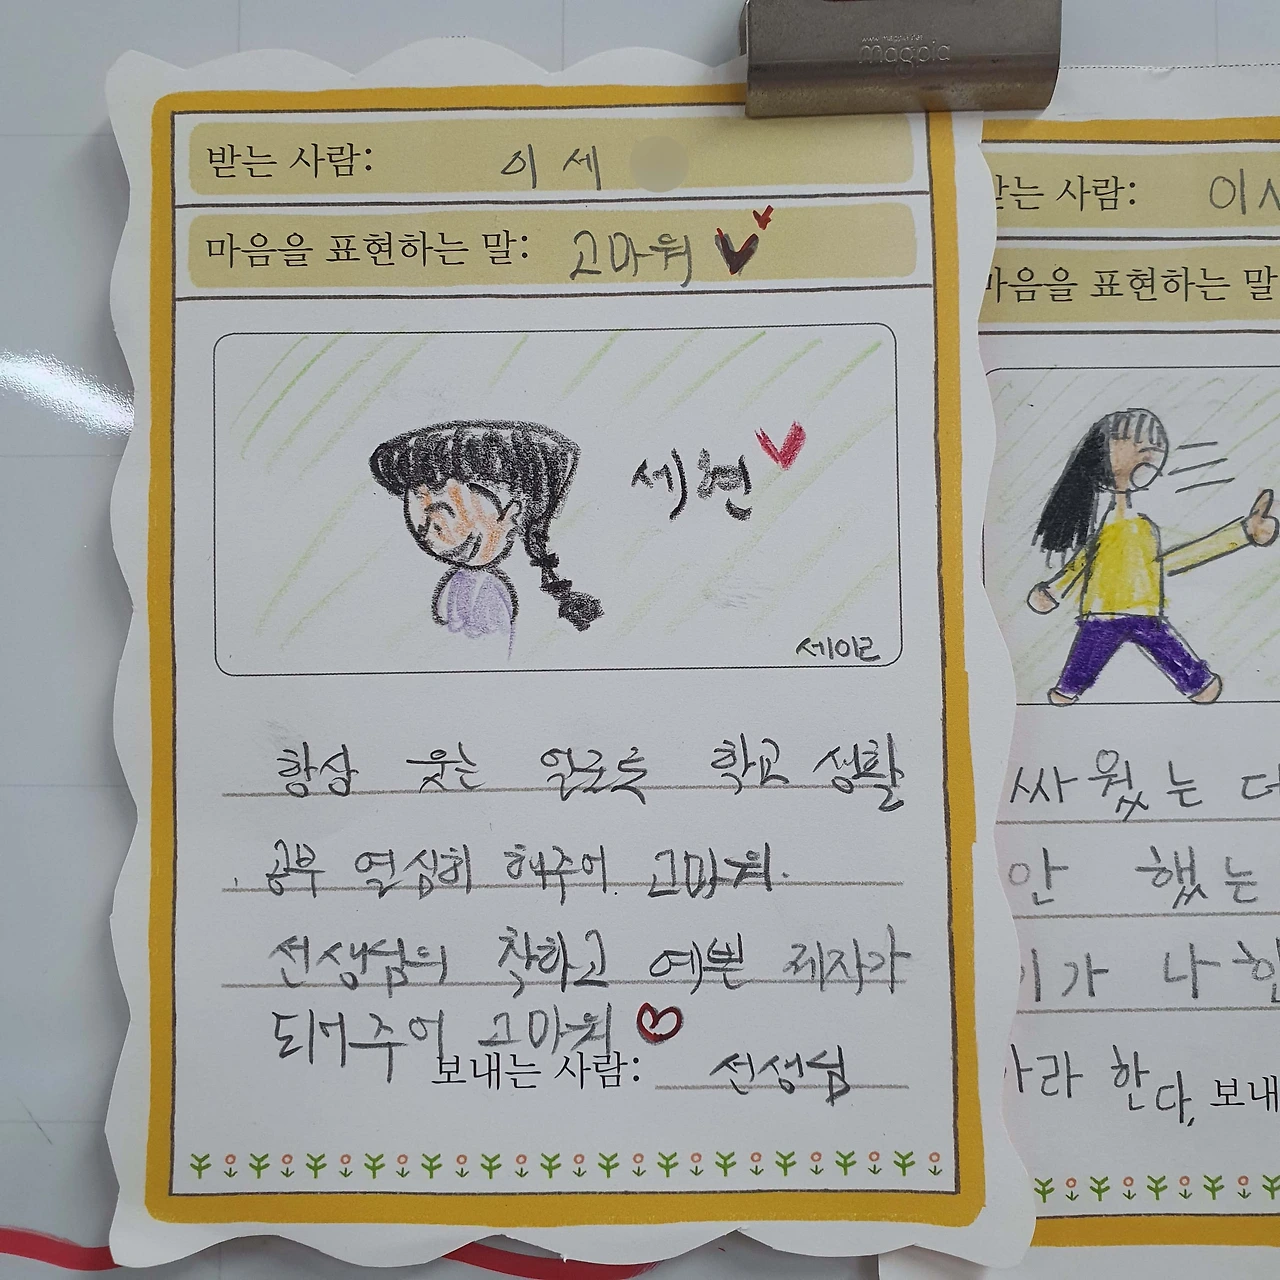 magpia
받는 사람: 이 세
마음을 표현하는 말: 고마워
세현
세이르
항상 웃는 얼굴로 학교 생활
공부 열심히 해주어. 고마워.
선생님의 착하고 예쁜 제자가
되어주어 고마워
보내는 사람: 선생님
받는 사람: 이
마음을 표현하는 말
싸웠는데
안 했는
이가 나한
라 한다,
보내